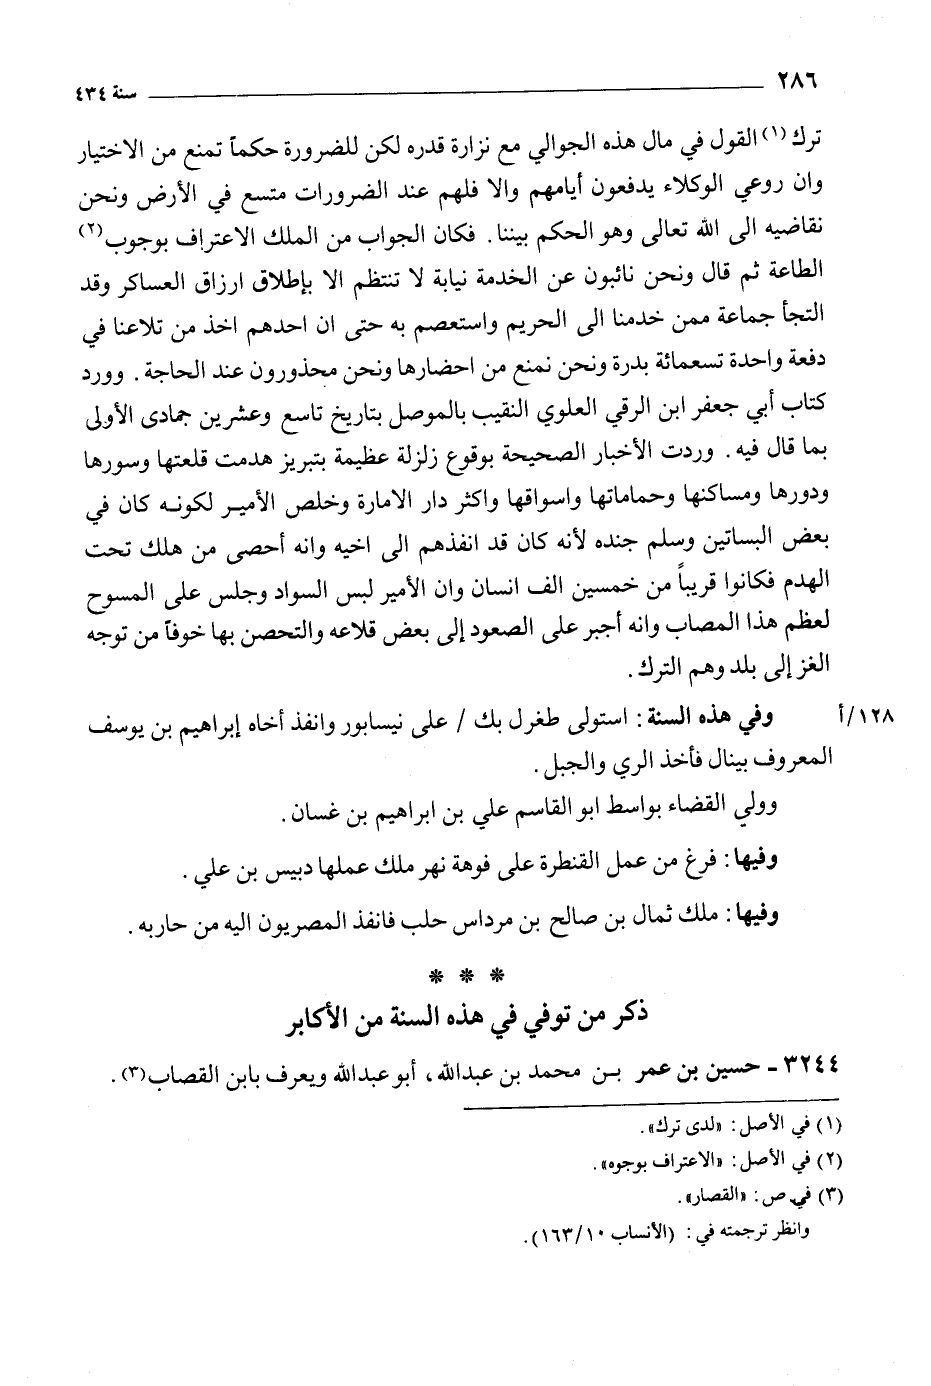 ٢٨٦ سنة ٤٣٤
ترك(١) القول في مال هذه الجوالي مع نزارة قدره لكن للضرورة حكماً تمنع من الاختيار
وان روعي الوكلاء يدفعون أيامهم والا فلهم عند الضرورات متسع في الأرض ونحن
نقاضيه الى الله تعالى وهو الحكم بيننا. فكان الجواب من الملك الاعتراف بوجوب(٢)
الطاعة ثم قال ونحن نائبون عن الخدمة نيابة لا تنتظم الا بإطلاق ارزاق العساكر وقد
التجأ جماعة ممن خدمنا الى الحريم واستعصم به حتى ان احدهم اخذ من تلاعنا في
دفعة واحدة تسعمائة بدرة ونحن نمنع من احضارها ونحن محذورون عند الحاجة. وورد
كتاب أبي جعفر ابن الرقي العلوي النقيب بالموصل بتاريخ تاسع وعشرين جمادى الأولى
بما قال فيه. وردت الأخبار الصحيحة بوقوع زلزلة عظيمة بتبريز هدمت قلعتها وسورها
ودورها ومساكنها وحماماتها واسواقها واكثر دار الامارة وخلص الأمير لكونه كان في
بعض البساتين وسلم جنده لأنه كان قد انفذهم الى اخيه وانه أحصى من هلك تحت
الهدم فكانوا قريباً من خمسين الف انسان وان الأمير لبس السواد وجلس على المسوح
لعظم هذا المصاب وانه أجبر على الصعود إلى بعض قلاعه والتحصن بها خوفاً من توجه
الغز إلى بلد وهم الترك.
وفي هذه السنة: استولى طغرل بك / على نيسابور وانفذ أخاه إبراهيم بن يوسف ١٢٨/أ
المعروف بينال فأخذ الري والجبل.
وولي القضاء بواسط ابو القاسم علي بن ابراهيم بن غسان.
وفيها: فرغ من عمل القنطرة على فوهة نهر ملك عملها دبيس بن علي.
وفيها: ملك ثمال بن صالح بن مرداس حلب فانفذ المصريون اليه من حاربه.
* * *
ذكر من توفي في هذه السنة من الأكابر
٣٢٤٤ - حسين بن عمر بن محمد بن عبدالله، أبو عبدالله ويعرف بابن القصاب(٣).
(١) في الأصل: «لدى ترك».
(٢) في الأصل: «الاعتراف بوجوه».
(٣) في ص: «القصار».
وانظر ترجمته في: (الأنساب ١٠/١٦٣).